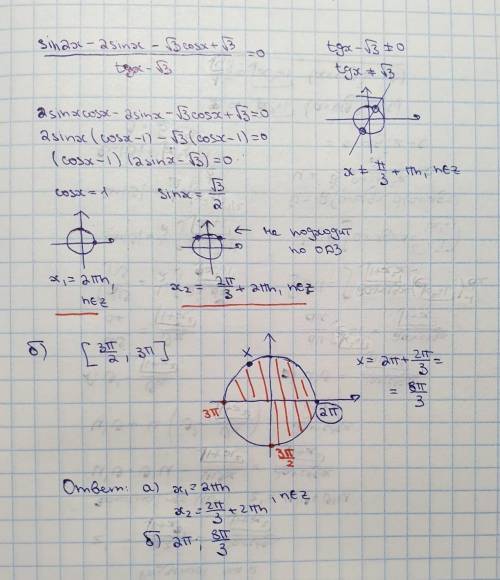 (sin2x - 2sinx - √3cosx + √3) / (tgx - √3) = 0
tgx - √3 ≠ 0
tgx ≠ √3
2sinxcosx - 2sinx - √3cosx + √3 = 0
2sinx(cosx-1) - √3(cosx-1) = 0
(cosx-1)(2sinx-√3) = 0
x ≠ π/3 + πn, n∈z
cosx = 1
sinx = √3/2
← не подходит
по ОДЗ
x₁ = 2πn,
n∈z
x₂ = 2π/3 + 2πn, n∈z
б) [3π/2, 3π]
x
x = 2π + 2π/3 =
= 8π/3
3π
2π
3π/2
Ответ: а) x₁ = 2πn
x₂ = 2π/3 + 2πn, n∈z
б) 2π; 8π/3